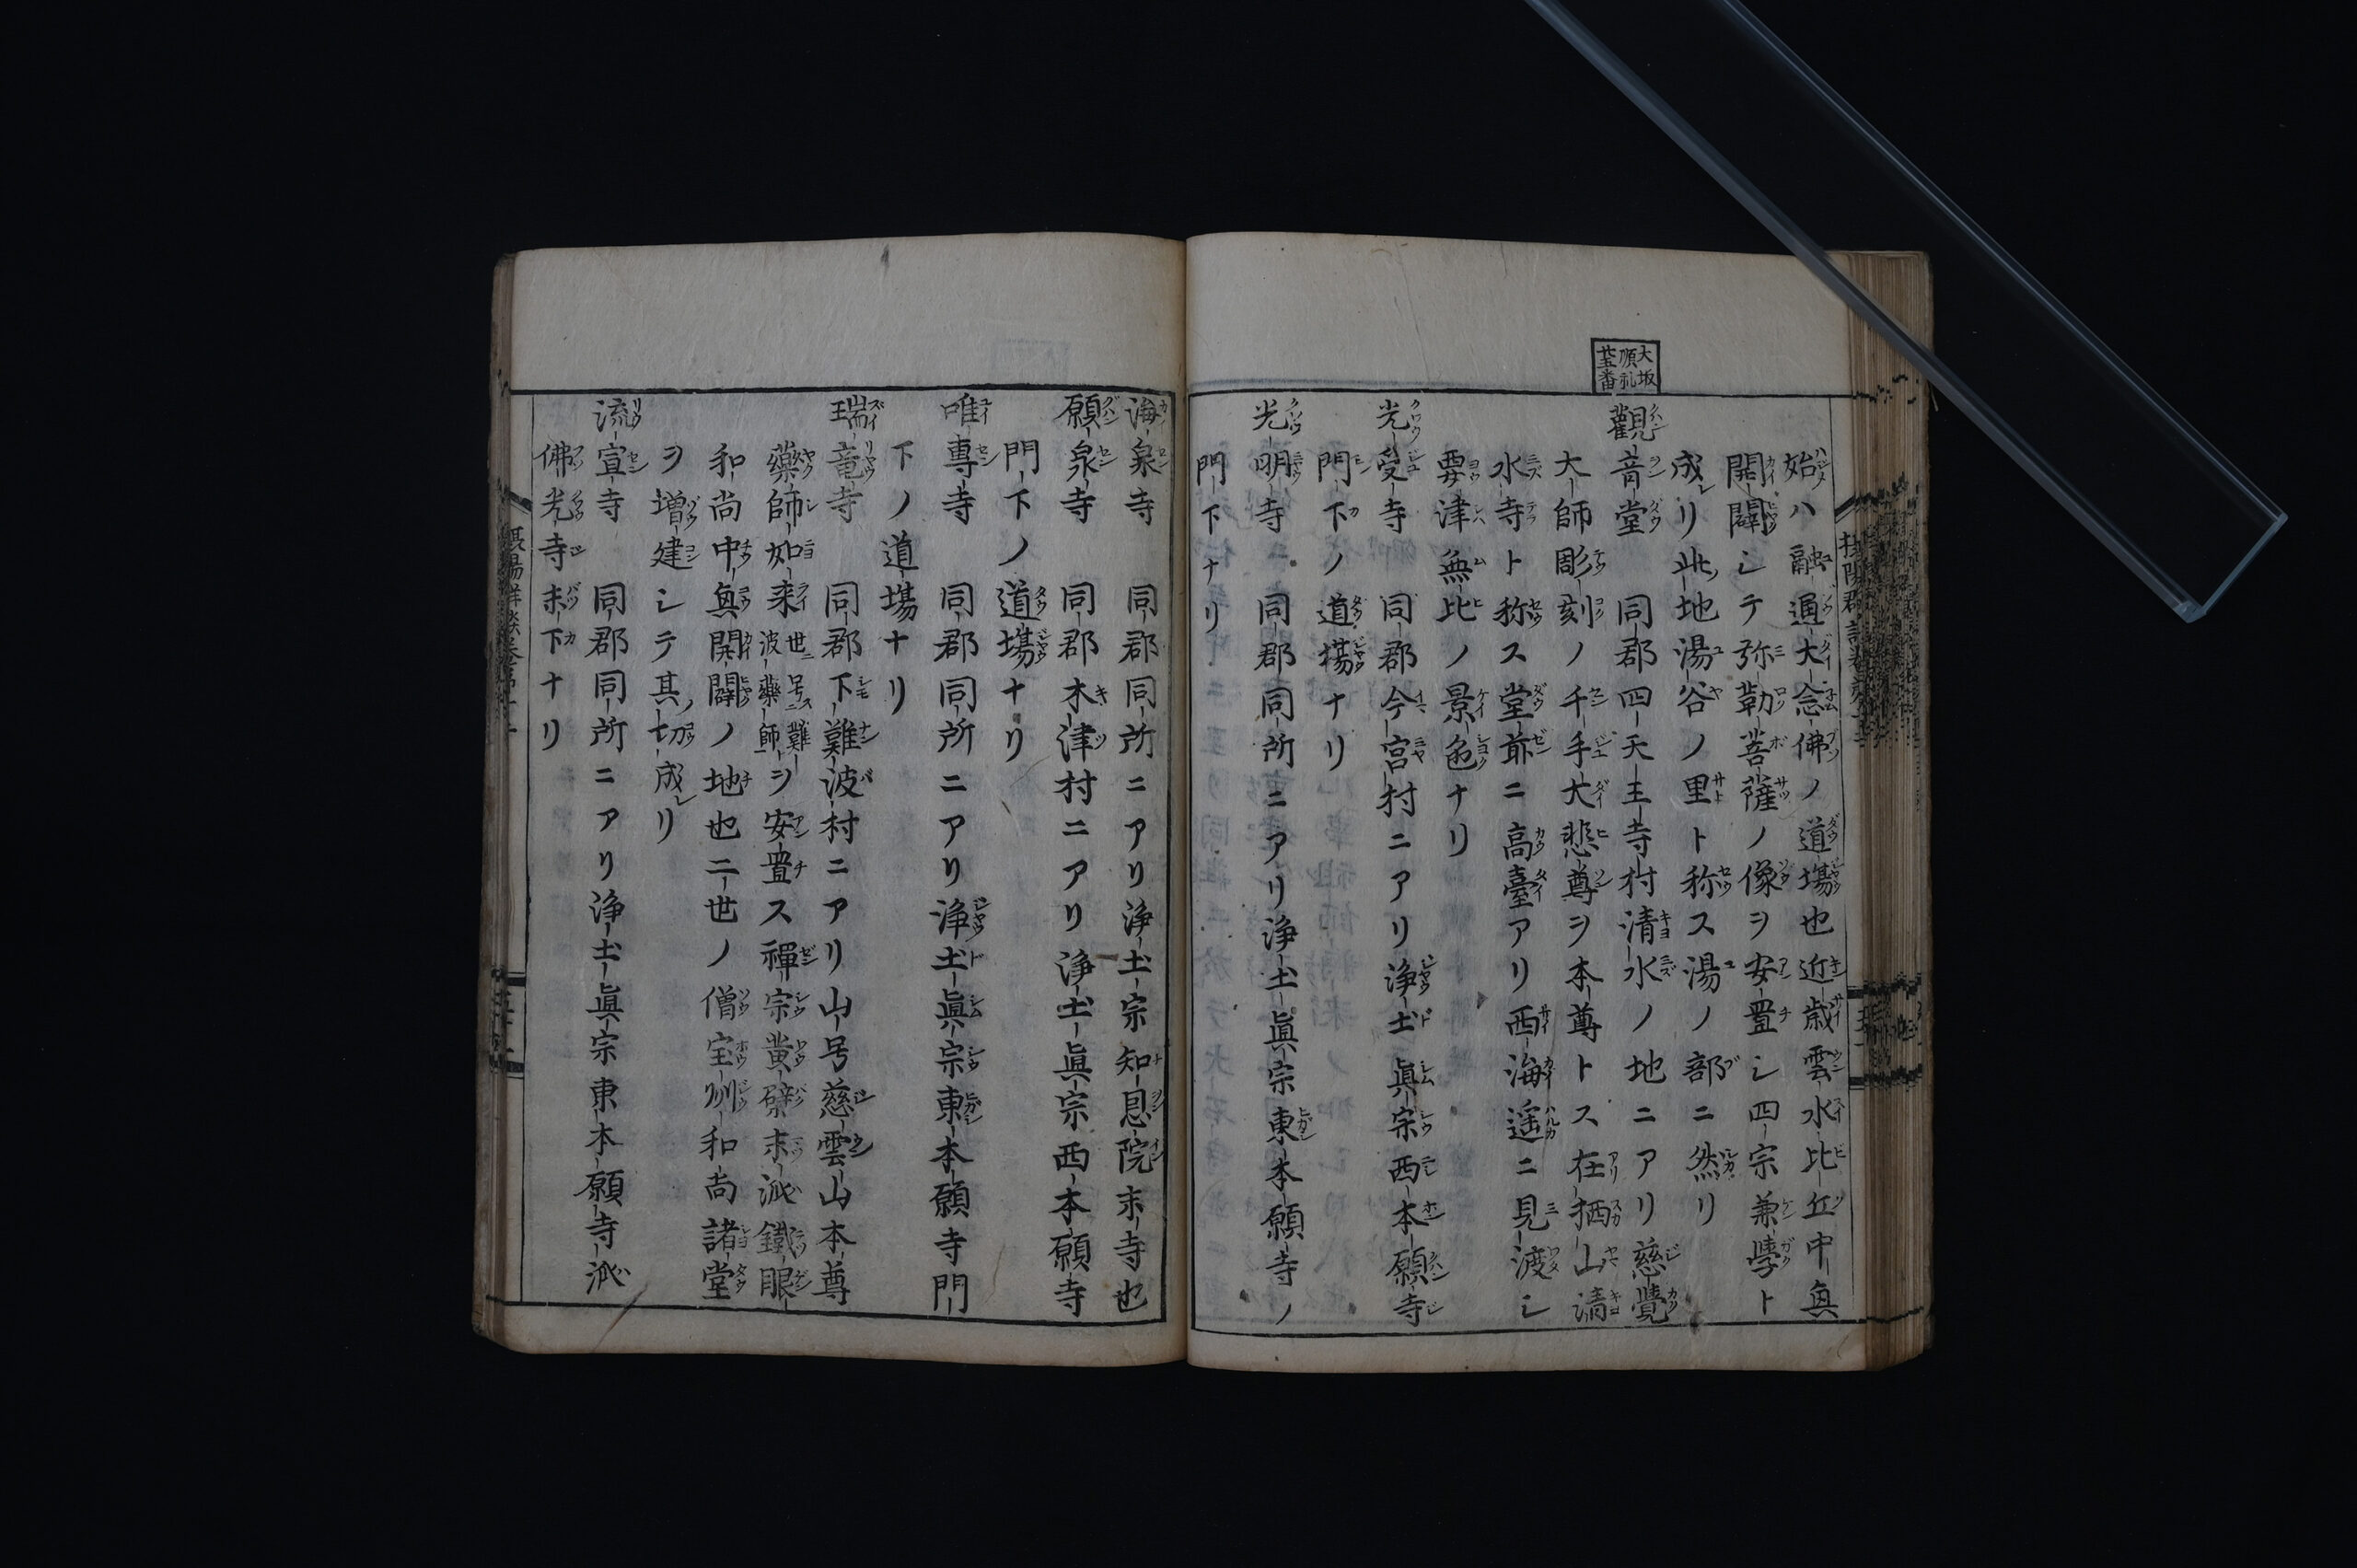 大坂
順礼
廿五番
始ハ融通大念佛ノ道場也近歳雲水比丘中興
開闢シテ弥勒菩薩ノ像ヲ安置シ四宗兼學ト
成レリ此地湯谷ノ里ト称ス湯ノ部ニ然リ
觀音堂 同郡四天王寺村清水ノ地ニアリ慈覺
大師彫刻ノ千手大悲尊ヲ本尊トス在栖山清
水寺ト称ス堂前ニ高臺アリ西海遥ニ見渡シ
要津無比ノ景色ナリ
光受寺 同郡今宮村ニアリ浄土眞宗西本願寺
門下ノ道場ナリ
光明寺 同郡同所ニアリ浄土眞宗東本願寺ノ
門下ナリ
海泉寺 同郡同所ニアリ浄土宗知恩院末寺也
願泉寺 同郡木津村ニアリ浄土眞宗西本願寺
門下ノ道場ナリ
唯專寺 同郡同所ニアリ浄土眞宗東本願寺門
下ノ道場ナリ
瑞竜寺 同郡下難波村ニアリ山号慈雲山本尊
藥師如来世ニ号ス難波藥師ヲ安置ス禪宗黄檗末派鐵眼
和尚中興開闢ノ地也二世ノ僧宝洲和尚諸堂
ヲ増建シテ其ノ功成レリ
流宣寺 同郡同所ニアリ浄土眞宗東本願寺派
佛光寺末下ナリ